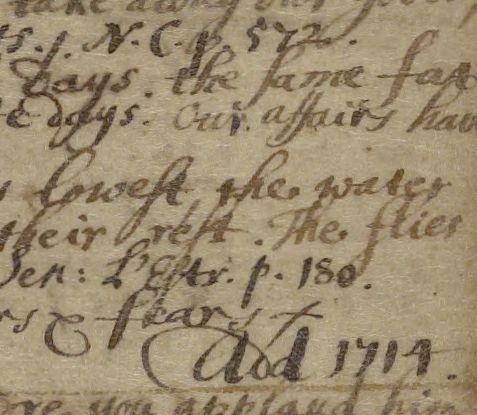 take along our
ts. N. C. p. 572.
Days. the same fat
te days. Our affairs hav
lowest the water
their rest. The flies
Sen: L'Estr. p. 180.
rs & fears +
Aod 1714.
ore you applaud him